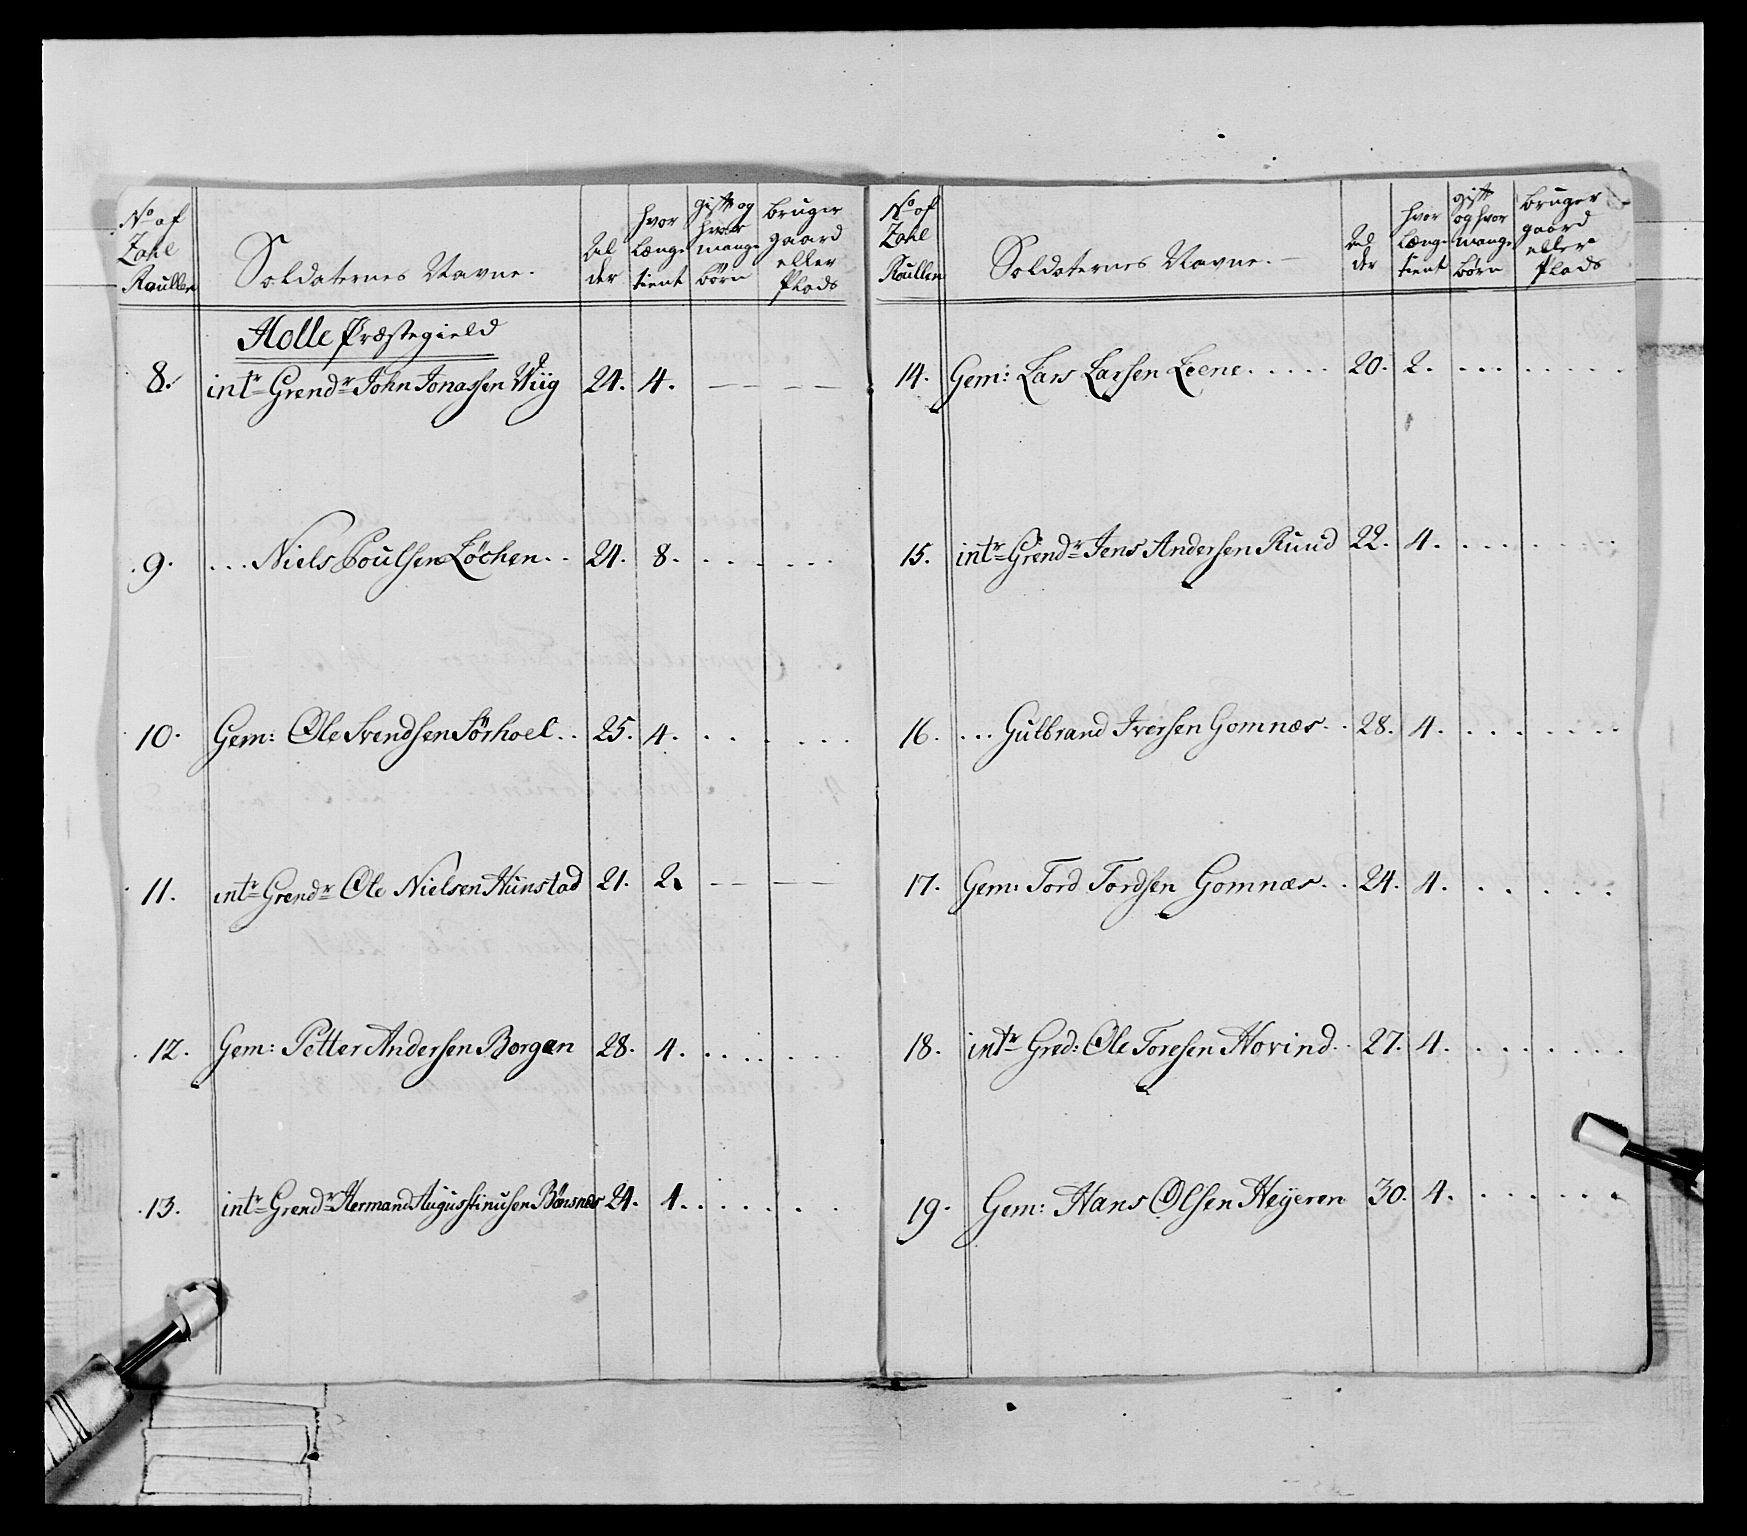 No af Zahl Raullen | Soldaternes Navne. | Alder | hvor længe tient | gift og hvor mange børn | bruger gaard eller Plads
Holle Præstegield
8. intr Grendr John Jonassen Wiig 24. 4. — — — —
9. ... Niels Poulsen Løchen .. 24. 8. . . . . . .
10. Gem: Ole Svendsen Sørhoel .. 25. 4. . . . . . .
11. intr Grendr Ole Nielsen Hunstad 21. 2. — — — —
12. Gem: Petter Andersen Borgen 28. 4. . . . . . .
13. intr Grendr Hermand Augustinusen Bønsnæs 24. 4. . . . . . .
No af Zahl Raullen | Soldaternes Navne. — | Alder | hvor længe tient | gift og hvor mange børn | bruger gaard eller Plads
14. Gem: Lars Larsen Leene ..... 20. 2. . . . . . . .
15. intr Grendr Jens Andersen Ruud 22. 4. . . . . . .
16. ... Gulbrand Iversen Gomnæs .. 28. 4. . . . . . .
17. Gem: Tord Tordsen Gomnæs .. 24. 4. . . . . .
18. intr Gred: Ole Toresen Hovind .. 27. 4. . . . . . .
19. Gem: Hans Olsen Heyeren 30. 4. . . . . . .